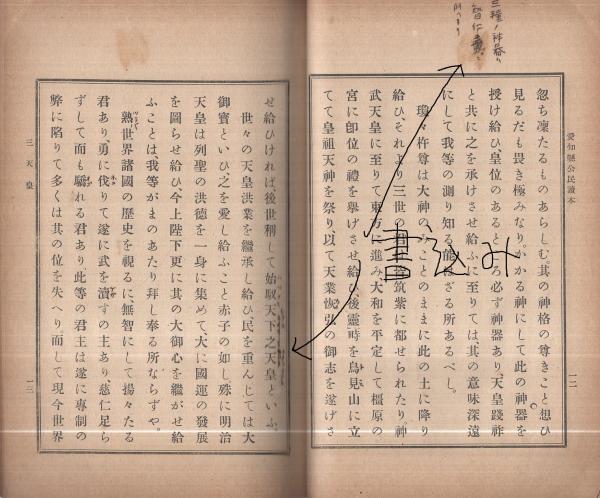 三種ノ神器ハ
智仁勇ニ
愛知縣公民讀本
一二
忽ち凜たるものあらしむ。其の神格の尊きこと想ひ
見るだも畏き極みなり。かかる神にして此の神器を
授け給ひ、皇位のあるところ必ず神器あり、天皇踐祚
と共に之を承けさせ給ふに至りては、其の意味深遠
にして我等の測り知る能はざる所あるべし。
瓊々杵尊は大神のみことのままに此の土に降り
給ひ、それより三世の間は筑紫に都せられたり。神
武天皇に至りて東方に進み大和を平定して橿原の
宮に卽位の禮を擧げさせ給ひ、後靈畤を鳥見山に立
てて皇祖天神を祭り、以て天業恢弘の御志を遂げさ
書込み
せ給ひければ、後世稱して始馭天下之天皇といふ。
世々の天皇洪業を繼承し給ひ、民を重んじては大
御寶といひ、之を愛し給ふこと赤子の如し。殊に明治
天皇は列聖の洪德を一身に集めて、大に國運の發展
を圖らせ給ひ、今上陛下更に其の大御心を繼がせ給
ふことは、我等がまのあたり拜し奉る所ならずや。
熟世界諸國の歷史を視るに、無智にして揚々たる
君あり、勇に伐りて遂に武を瀆すの主あり、慈仁足ら
ずして而も驕れる君あり。此等の君主は遂に專制の
弊に陷りて多くは其の位を失へり。而して現今世界
三 天皇
一三